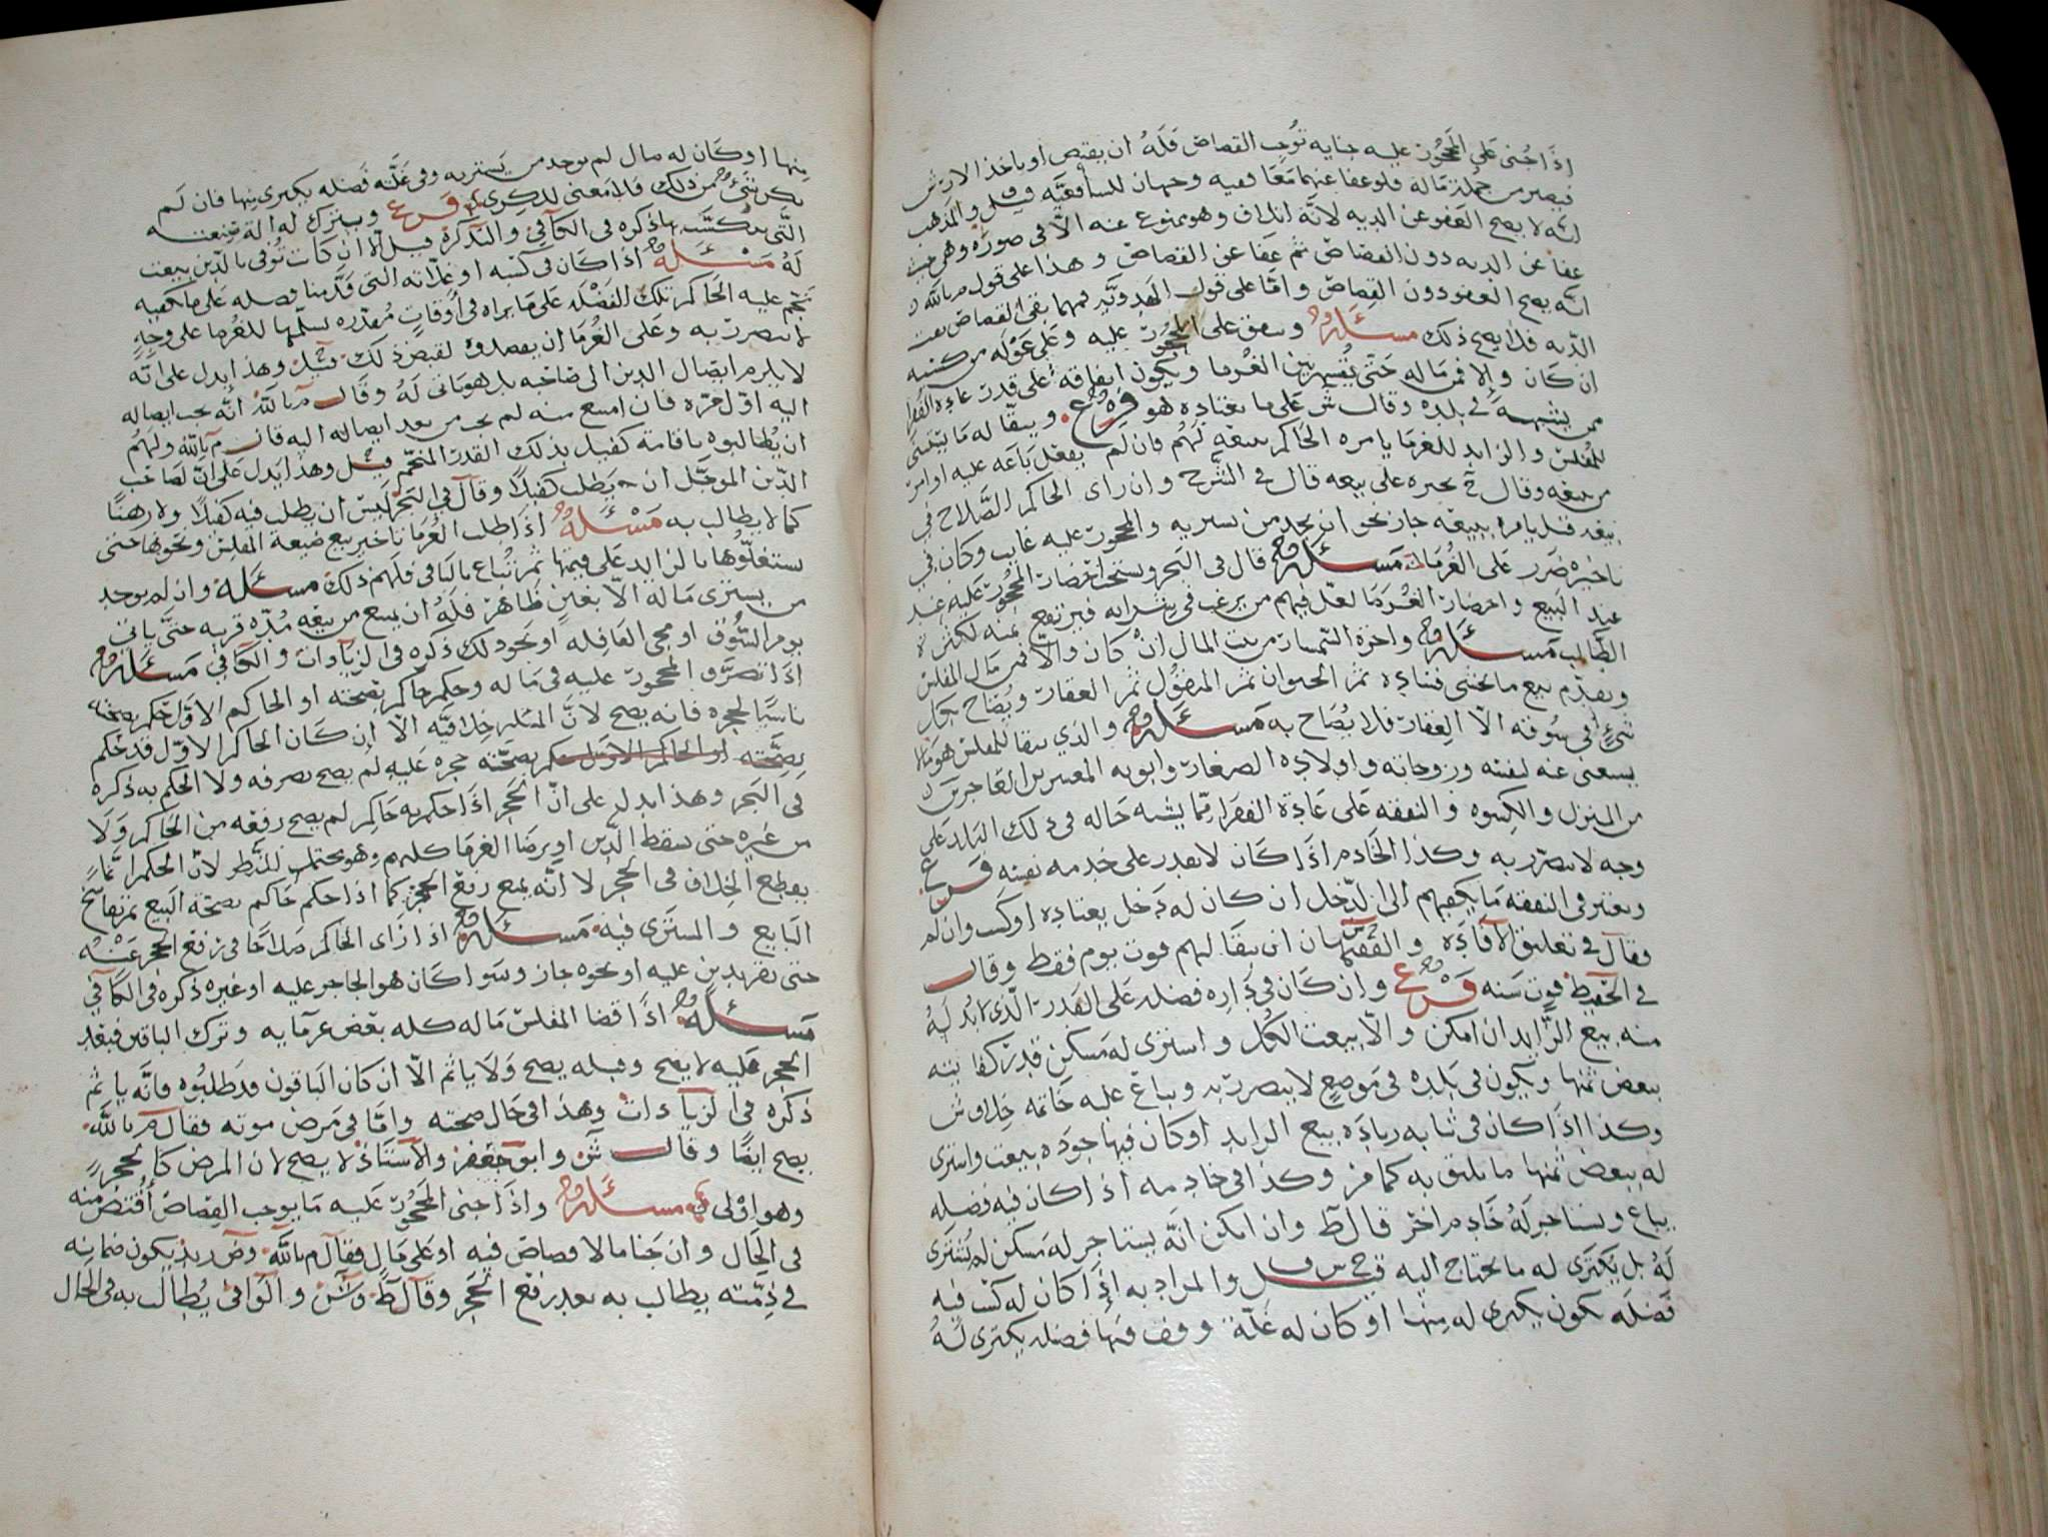 اذا جنى على المحجور عليه جنايه توجب القصاص فله ان يقتص او ياخذ الارش
فيصير من جملة ماله فلو عفا عنهما معا ففيه وجهان للشافعيه قيل والمذهب
انه لا يصح العفو عن الديه لانه اتلاف وهو ممنوع عنه الا في صوره وهي حيث
عفا عن الديه دون القصاص ثم عفا عن القصاص وهذا على قول م بالله
انه يصح العفو دون القصاص واما على قول الهدويه فمهما بقي القصاص بقت
الديه فلا يصح ذلك مسئله وينفق على المحجور عليه وعلى عوله من كسبه
ان كان والا فمن ماله حتى يقسم بين الغرما ويكون انفاقه على قدر عاده الفقرا
ممن يشبهه في بلده وقال ش على ما يعتاده هو فرع ويبقا له ما يبقى
للمفلس والزايد للغرما يامره الحاكم ببيعه لهم فان لم يفعل باعه عليه او امر
من يبيعه وقال ح يجبره على بيعه قال في الشرح وان راى الحاكم الصلاح في
بيعه قبل يامره ببيعه جاز نحو ان يجد من يشتريه والمحجور عليه غايب وكان في
تاخيره ضرر على الغرما مسئله قال في البحر ويستحب احضار المحجور عليه عند
عند البيع واحضار الغرما لعل فيهم من يرغب في شرايه فيرتفع ثمنه لكثرة
الطالب مسئله واجرة السمسار من بيت المال ان كان والا فمن مال المفلس
ويقدم بيع ما يخشى فساده ثم الحيوان ثم المنقول ثم العقار ويصاح بكل
شيء في سوقه الا العقار فلا يصاح به مسئله والذي يبقا للمفلس هو ما لا
يستغني عنه لنفسه وزوجاته واولاده الصغار وابويه المعسرين العاجزين
من المنزل والكسوه والنفقه على عادة الفقرا مما يشبه حاله في ذلك البلد على
وجه لا يتضرر به وكذا الخادم اذا كان لا يقدر على خدمه نفسه فرع
ويعتبر في النفقه ما يكفيهم الى الدخل ان كان له دخل يعتاده او كسب وان لم
فقال في تعليق الافاده والفقيهان ان يبقا لهم قوت يوم فقط وقال
في الحفيظ قوت سنه فرع وان كان في داره فضله على القدر الذي لا بد له
منه بيع الزايد ان امكن والا بيعت الكل واشترى له مسكن قدر كفايته
ببعض ثمنها ويكون في بلده في موضع لا يتضرر به ويباع عليه خاتمه خلاف ش
وكذا اذا كان في ثيابه زياده بيع الزايد او كان فيها جوده بيعت واشترى
له ببعض ثمنها ما يليق به كما مر وكذا في خادمه اذا كان فيه فضله
يباع ويستاجر له خادم اخر قال ط وان امكن انه يستاجر له مسكن لم يشترى
له بل يكترى له ما يحتاج اليه قيل ح س ف والمراد به اذا كان له كسب فيه
فضله يكون يكترى له منها او كان له غلة وقف فيها فضله يكترى له
منها او كان له مال لم يوجد من يشتريه وفي غلته فضله يكترى منها فان لم
يكن شيء من ذلك فلا معنى للكرى فرع ويترك له الة صنعته
التي يتكسب بها ذكره في الكافي والتذكره قيل الا ان كانت توفي بالدين بيعت
له مسئله اذا كان في كسبه او غلاته التي قدمنا فضله على ما يكفيه
نجم عليه الحاكم تلك الفضله على ما يراه في اوقات مقدره يسلمها للغرما على وجه
لا يتضرر به وعلى الغرما ان يقصدوه لقبض ذلك قيل وهذا يدل على انه
لا يلزم ايصال الدين الى صاحبه بل هو ياتي له وقال م بالله انه يجب ايصاله
اليه اول مره فان امتنع منه لم يجب من بعد ايصاله اليه قال م بالله ولهم
ان يطالبوه باقامة كفيل بذلك القدر المنجم قيل وهذا يدل على ان لصاحب
الدين الموجل ان يطلب كفيلا وقال في البحر ليس ان يطلب فيه كفيلا ولا رهنا
كما لا يطالب به مسئله اذا طلب الغرما تاخير بيع ضيعة المفلس ونحوها حتى
يستغلوها بالزايد على قيمتها ثم تباع بالباقي فلهم ذلك مسئله وان لم يوجد
من يشترى ماله الا بغبن ظاهر فله ان يمنع من بيعه مده قريبه حتى ياتي
يوم السوق او مجي القافله او نحو ذلك ذكره في الزيادات والكافي مسئله
اذا تصرف المحجور عليه في ماله وحكم حاكم بصحته او الحاكم الاول حكم بصحته
ناسيا لحجره فانه يصح لان المسئله خلافيه الا ان كان الحاكم الاول قد حكم
بصحته او الحاكم الاول حكم بصحته حجره عليه لم يصح تصرفه ولا الحكم به ذكره
في البحر وهذا يدل على ان الحجر اذا حكم به حاكم لم يصح رفعه من الحاكم ولا
من غيره حتى يسقط الدين او يرضا الغرما كلهم وهو محتمل للنظر لان الحكم انما
يقطع الخلاف في الحجر لا انه يمنع رفع الحجر كما اذا حكم حاكم بصحة البيع ثم تفاسخ
البايع والمشترى فيه مسئله اذا راى الحاكم صلاحا في رفع الحجر عنه
حتى تقريد بن عليه او نحوه جاز وسوا كان هو الحاجر عليه او غيره ذكره في الكافي
مسئله اذا قضا المفلس ماله كله بعض غرمايه وترك الباقين فبعد
الحجر عليه لا يصح وقبله يصح ولا ياثم الا ان كان الباقون قد طلبوه فانه ياثم
ذكره في الزيادات وهذا في حال صحته واما في مرض موته فقال م بالله
يصح ايضا وقال ش وابو جعفر والاستاذ لا يصح لان المرض كالحجر
وهو اولى مسئله واذا جنى المحجور عليه ما يوجب القصاص اقتص منه
في الحال وان جنا ما لا قصاص فيه او على مال فقال م بالله وض زيد يكون ضمانه
في ذمته يطالب به بعد رفع الحجر وقال ط وش والوافي يطالب به في الحال